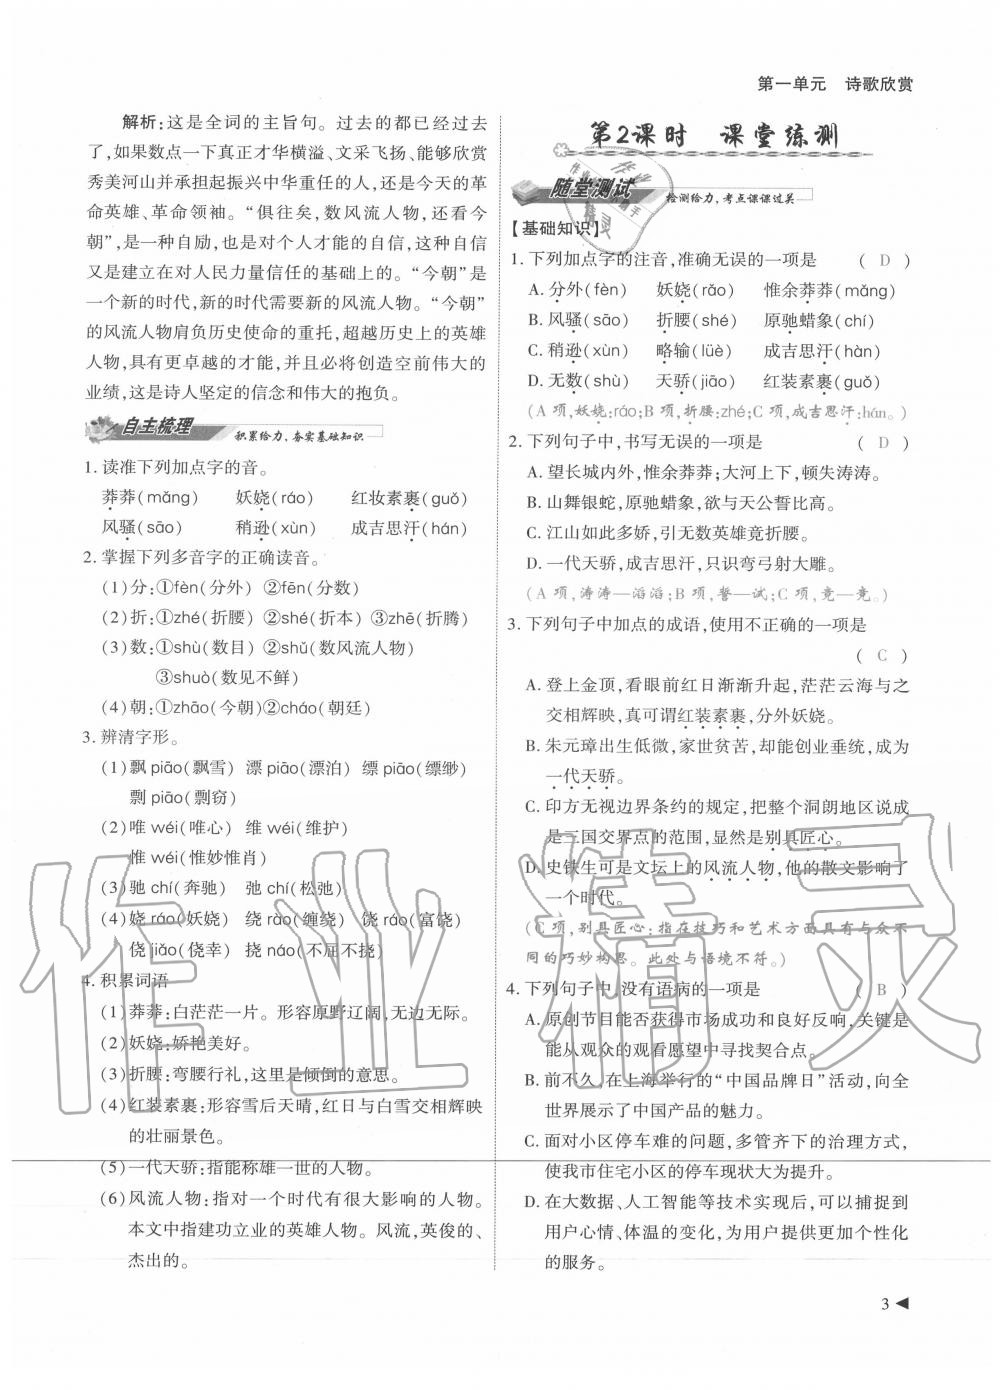 第一单元 诗歌欣赏
解析:这是全词的主旨句。过去的都已经过去
了,如果数点一下真正才华横溢、文采飞扬、能够欣赏
秀美河山并承担起振兴中华重任的人,还是今天的革
命英雄、革命领袖。“俱往矣,数风流人物,还看今
朝”,是一种自励,也是对今人才能的自信,这种自信
又是建立在对人民力量信任的基础上的。“今朝”是
一个新的时代,新的时代需要新的风流人物。“今朝”
的风流人物肩负历史使命的重托,超越历史上的英雄
人物,具有更卓越的才能,并且必将创造空前伟大的
业绩,这是诗人坚定的信念和伟大的抱负。
自主梳理 积累给力、夯实基础知识
1. 读准下列加点字的音。
莽莽(mǎng) 妖娆(ráo) 红妆素裹(guǒ)
风骚(sāo) 稍逊(xùn) 成吉思汗(hán)
2. 掌握下列多音字的正确读音。
(1)分:①fèn(分外) ②fēn(分数)
(2)折:①zhé(折腰) ②shé(折本) ③zhē(折腾)
(3)数:①shù(数目) ②shǔ(数风流人物)
③shuò(数见不鲜)
(4)朝:①zhāo(今朝)②cháo(朝廷)
3. 辨清字形。
(1)飘 piāo(飘雪) 漂 piāo(漂泊) 缥 piāo(缥缈)
剽 piāo(剽窃)
(2)唯 wéi(唯心) 维 wéi(维护)
惟 wéi(惟妙惟肖)
(3)驰 chí(奔驰) 弛 chí(松弛)
(4)娆 ráo(妖娆) 绕 rào(缠绕) 饶 ráo(富饶)
侥 jiǎo(侥幸) 挠 náo(不屈不挠)
4. 积累词语
(1)莽莽:白茫茫一片。形容原野辽阔,无边无际。
(2)妖娆:娇艳美好。
(3)折腰:弯腰行礼,这里是倾倒的意思。
(4)红装素裹:形容雪后天晴,红日与白雪交相辉映
的壮丽景色。
(5)一代天骄:指能称雄一世的人物。
(6)风流人物:指对一个时代有很大影响的人物。
本文中指建功立业的英雄人物。风流,英俊的、
杰出的。
第2课时 课堂练测
随堂测试 检测给力,考点课课过关
【基础知识】
1. 下列加点字的注音,准确无误的一项是 ( D )
A. 分外(fèn) 妖娆(rǎo) 惟余莽莽(mǎng)
B. 风骚(sāo) 折腰(shé) 原驰蜡象(chí)
C. 稍逊(xùn) 略输(lüè) 成吉思汗(hàn)
D. 无数(shù) 天骄(jiāo) 红装素裹(guǒ)
(A 项,妖娆:ráo;B 项,折腰:zhé;C 项,成吉思汗:hán。)
2. 下列句子中,书写无误的一项是 ( D )
A. 望长城内外,惟余莽莽;大河上下,顿失涛涛。
B. 山舞银蛇,原驰蜡象,欲与天公誓比高。
C. 江山如此多娇,引无数英雄竟折腰。
D. 一代天骄,成吉思汗,只识弯弓射大雕。
(A 项,涛涛—滔滔;B 项,誓—试;C 项,竟—竞。)
3. 下列句子中加点的成语,使用不正确的一项是
( C )
A. 登上金顶,看眼前红日渐渐升起,茫茫云海与之
交相辉映,真可谓红装素裹,分外妖娆。
B. 朱元璋出生低微,家世贫苦,却能创业垂统,成为
一代天骄。
C. 印方无视边界条约的规定,把整个洞朗地区说成
是三国交界点的范围,显然是别具匠心。
D. 史铁生可是文坛上的风流人物,他的散文影响了
一个时代。
(C 项,别具匠心:指在技巧和艺术方面具有与众不
同的巧妙构思。此处与语境不符。)
4. 下列句子中,没有语病的一项是 ( B )
A. 原创节目能否获得市场成功和良好反响,关键是
能从观众的观看愿望中寻找契合点。
B. 前不久,在上海举行的“中国品牌日”活动,向全
世界展示了中国产品的魅力。
C. 面对小区停车难的问题,多管齐下的治理方式,
使我市住宅小区的停车现状大为提升。
D. 在大数据、人工智能等技术实现后,可以捕捉到
用户心情、体温的变化,为用户提供更加个性化
的服务。
3
作业精灵